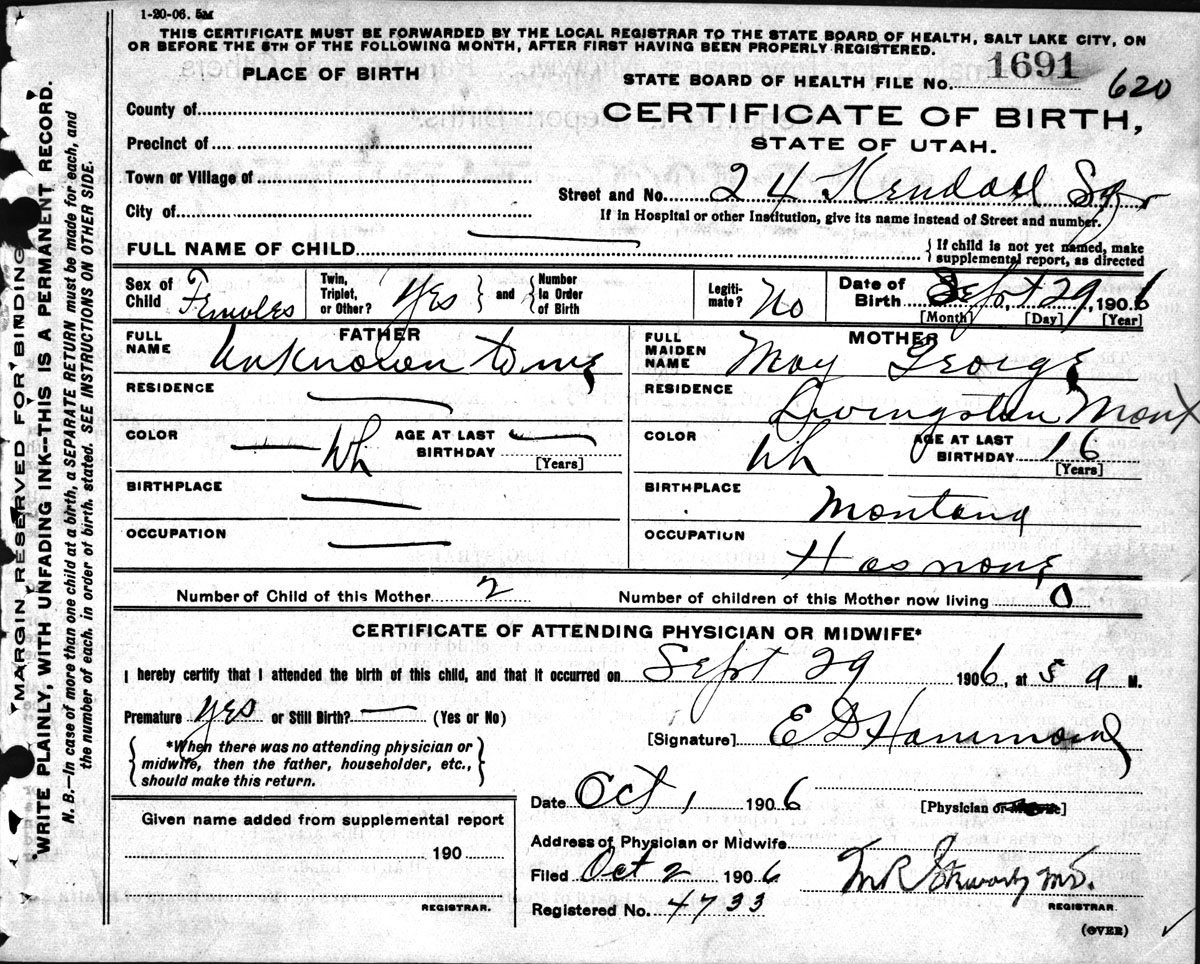 1-20-06. 5M
THIS CERTIFICATE MUST BE FORWARDED BY THE LOCAL REGISTRAR TO THE STATE BOARD OF HEALTH, SALT LAKE CITY, ON
OR BEFORE THE 5TH OF THE FOLLOWING MONTH, AFTER FIRST HAVING BEEN PROPERLY REGISTERED.
PLACE OF BIRTH
STATE BOARD OF HEALTH FILE No. 1691 620
County of
CERTIFICATE OF BIRTH,
Precinct of
STATE OF UTAH.
Town or Village of
Street and No. 24 Kendall Sqr
City of
If in Hospital or other Institution, give its name instead of Street and number.
FULL NAME OF CHILD
{ If child is not yet named, make
supplemental report, as directed
Sex of Child Females
Twin, Triplet, or Other? Yes } and { Number in Order of Birth
Legiti- mate? No
Date of Birth Sept 29, 1906
[Month] [Day] [Year]
FATHER
FULL NAME Unknown to me
MOTHER
FULL MAIDEN NAME May George
RESIDENCE
RESIDENCE Livingston Mont
COLOR Wh
AGE AT LAST BIRTHDAY
[Years]
COLOR Wh
AGE AT LAST BIRTHDAY 16
[Years]
BIRTHPLACE
BIRTHPLACE Montana
OCCUPATION
OCCUPATION Has none
Number of Child of this Mother 2
Number of children of this Mother now living 0
CERTIFICATE OF ATTENDING PHYSICIAN OR MIDWIFE*
I hereby certify that I attended the birth of this child, and that it occurred on Sept 29 1906, at 5 a M.
Premature yes or Still Birth? — (Yes or No)
{ *When there was no attending physician or
midwife, then the father, householder, etc.,
should make this return. }
[Signature] E D Hammond
Date Oct 1 1906
[Physician or Midwife]
Given name added from supplemental report
190
REGISTRAR.
Address of Physician or Midwife
Filed Oct 2 1906
M.D.
REGISTRAR.
Registered No. 4733
(OVER)
MARGIN RESERVED FOR BINDING
WRITE PLAINLY, WITH UNFADING INK--THIS IS A PERMANENT RECORD.
N. B.—In case of more than one child at a birth, a SEPARATE RETURN must be made for each, and
the number of each, in order of birth, stated. SEE INSTRUCTIONS ON OTHER SIDE.